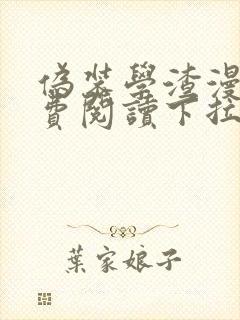 偽裝學渣漫
費閱讀下拉
葉家娘子